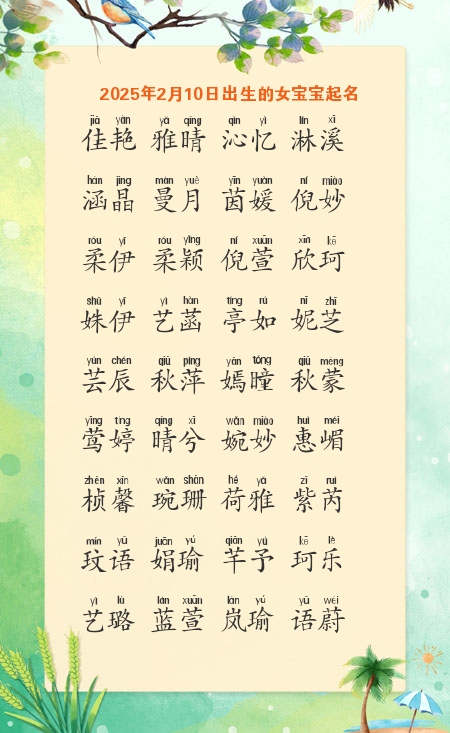 2025年2月10日出生的女宝宝起名
jiā yàn yǎ qíng qìn yì lín xī
佳艳 雅晴 沁忆 淋溪
hán jīng màn yuè yīn yuán ní miào
涵晶 曼月 茵媛 倪妙
róu yī róu yǐng ní xuān xīn kē
柔伊 柔颖 倪萱 欣珂
shū yī yì hàn tíng rú nī zhī
姝伊 艺菡 亭如 妮芝
yún chén qiū píng yān tóng qiū méng
芸辰 秋萍 嫣瞳 秋蒙
yīng tíng qíng xī wǎn miào huì mèi
莺婷 晴兮 婉妙 惠嵋
zhēn xīn wǎn shān hé yǎ zǐ ruì
桢馨 琬珊 荷雅 紫芮
mín yǔ juān yú qiān yú kē lè
玟语 娟瑜 芊予 珂乐
yì lù lán xuān lán yú yǔ wèi
艺璐 蓝萱 岚瑜 语蔚